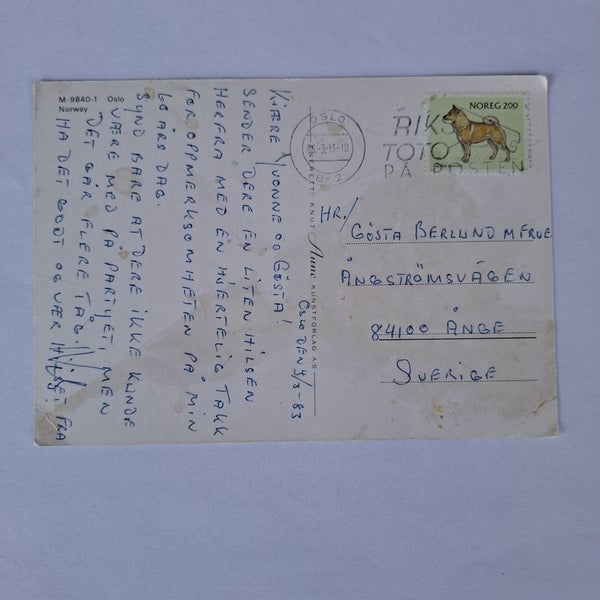 M-9840-1 Oslo
Norway
OSLO
Br. 2
RIKS
TOTO
PÅ POSTEN
NOREG 200
ENERETT: KNUT Aune KUNSTFORLAG AS
OSLO DEN 4/3-83
KJÆRE YVONNE OG GÖSTA!
SENDER DERE EN LITEN HILSEN
HERFRA MED EN HJERTELIG TAKK
FOR OPPMERKSOMHETEN PÅ MIN
60 ÅRS DAG.
SYND BARE AT DERE IKKE KUNDE
VÆRE MED PÅ PARTYET, MEN
DET GÅR FLERE TÅG!
HA DET GODT OG VÆR HILSET FRA
HR/
GÖSTA BERLUND M FRUE
ÅNGSTRÖMSVÄGEN
84100 ÅNGE
SVERIGE